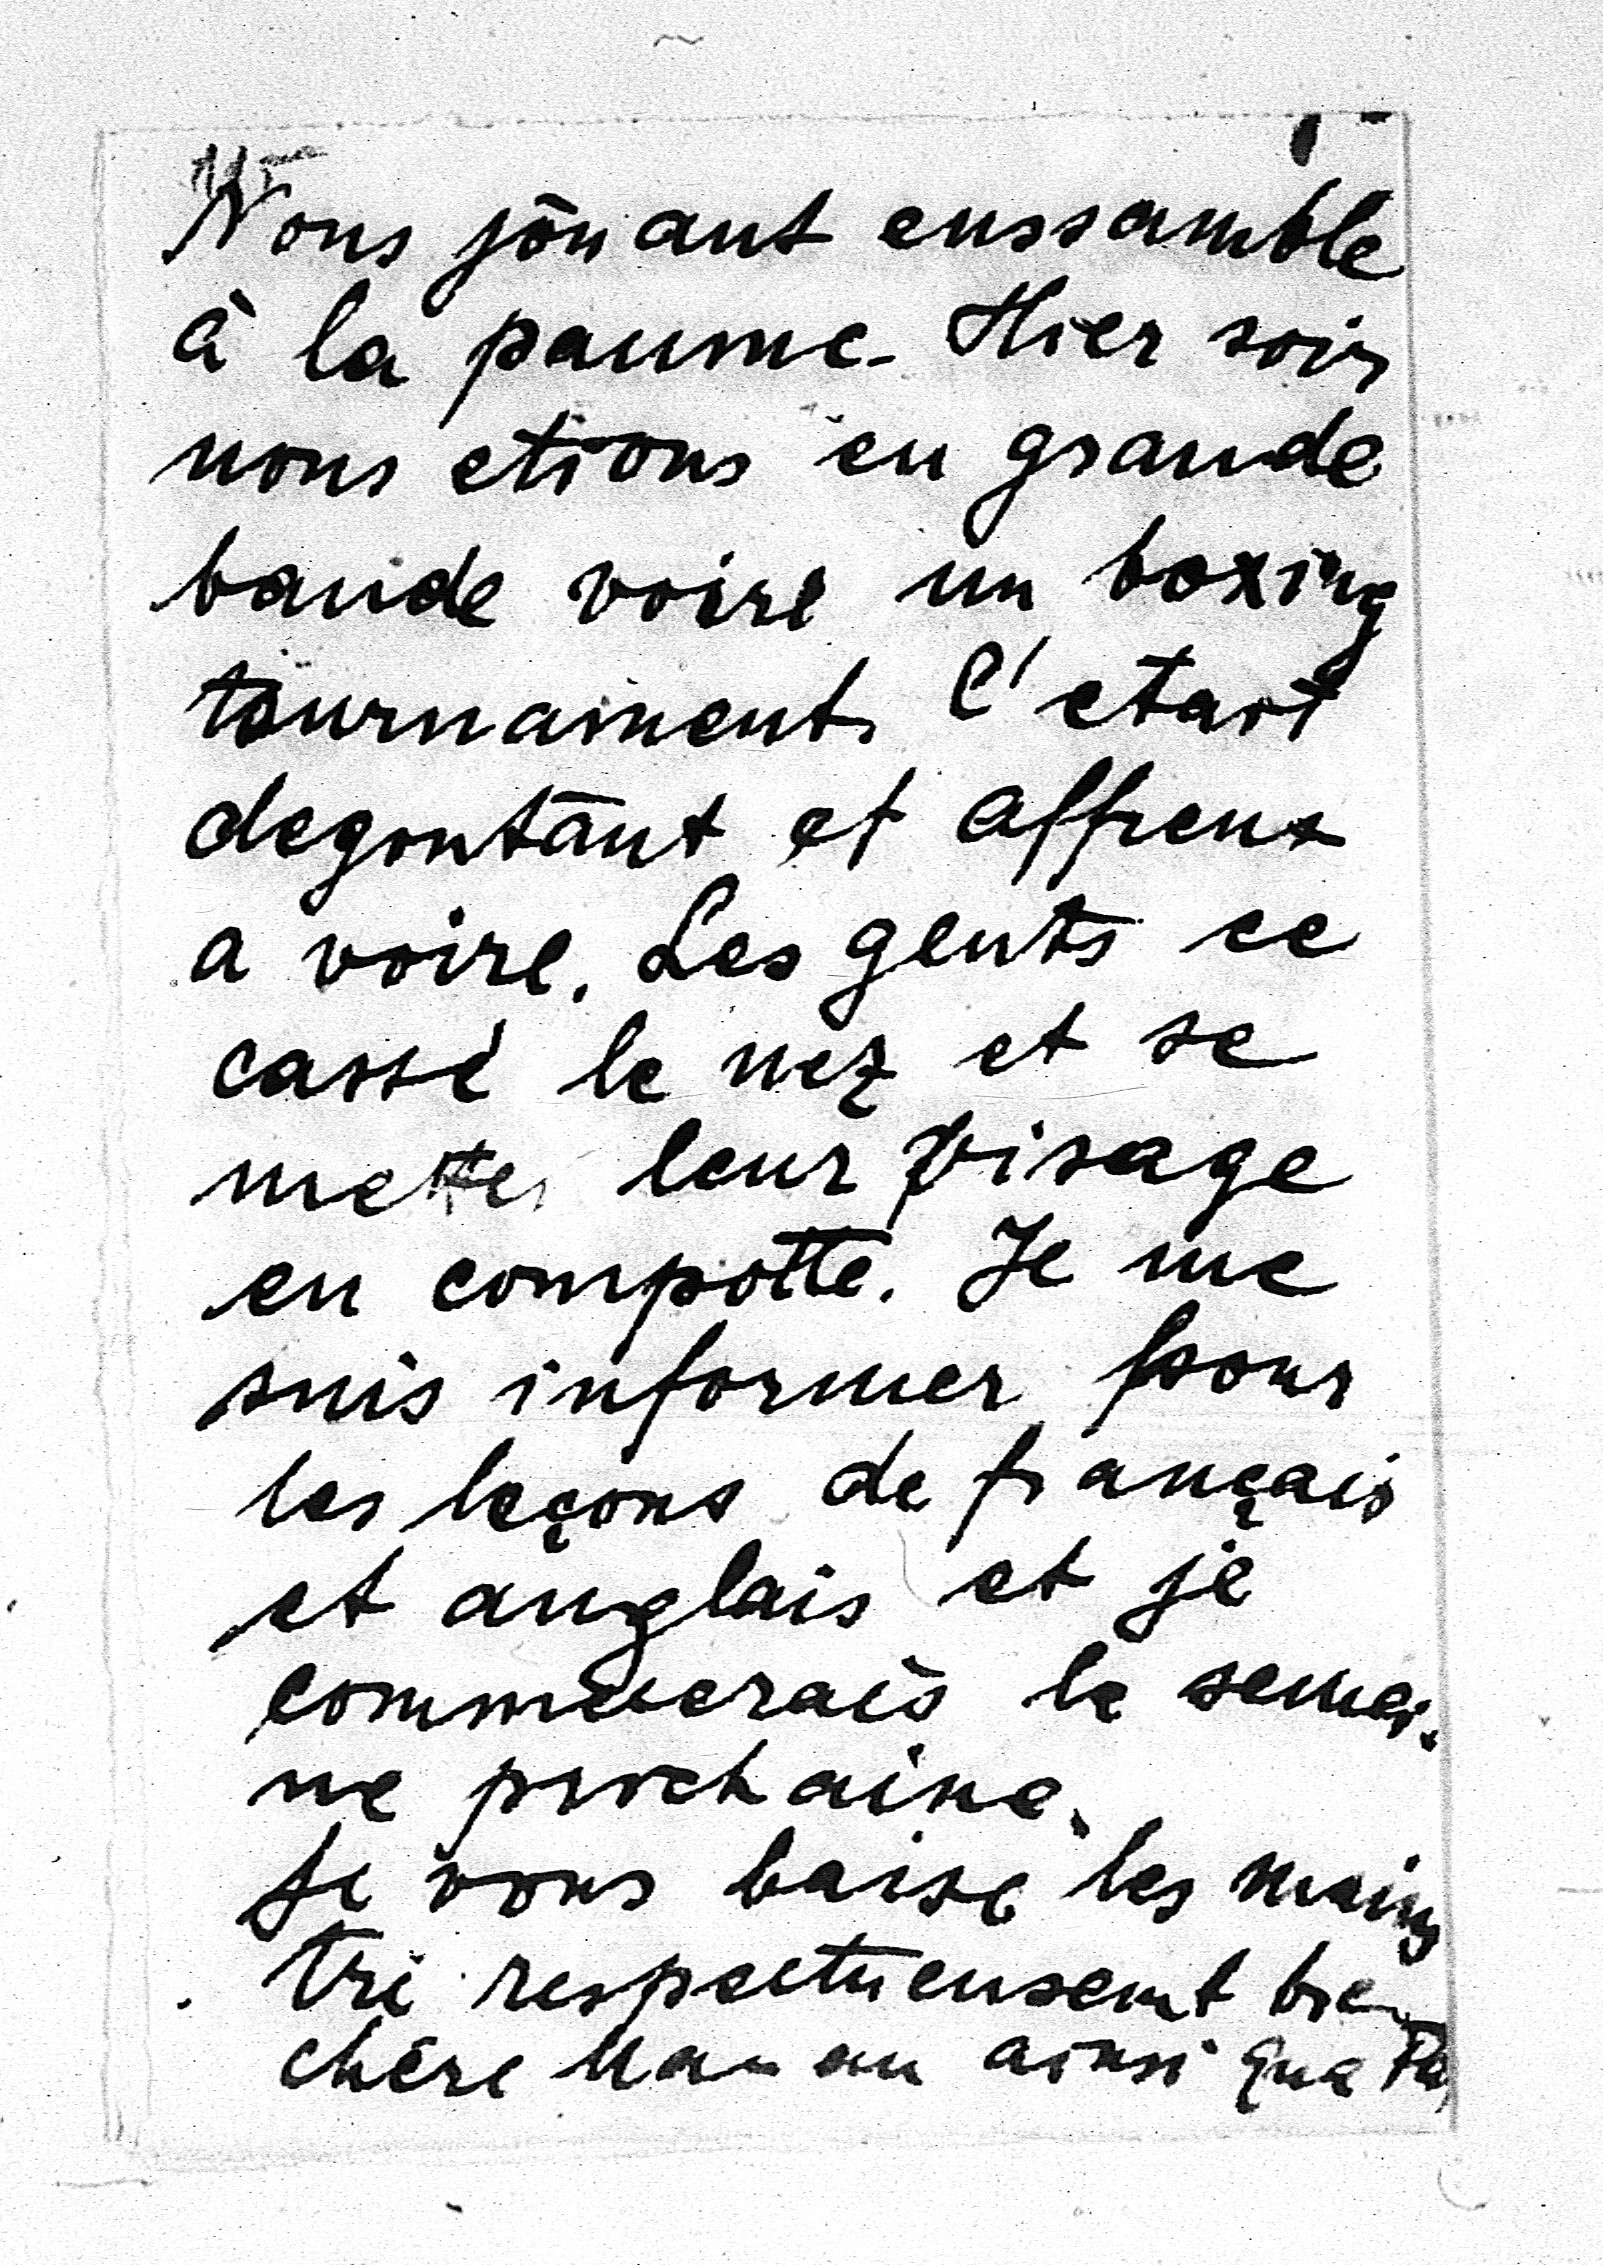 Nous jouant enssamble
à la paume. Hier soir
nous etions en grande
bande voire un boxing
tournament. C'etait
degoutant et affreux
a voire. Les gents ce
cassé le nez et se
mette leur visage
en compotte. Je me
suis informer pour
les leçons de français
et anglais et je
commencerais la semai-
ne prochaine.
Je vous baise les mains
tré respectueusement bie
chère Maman ainsi qua Pa